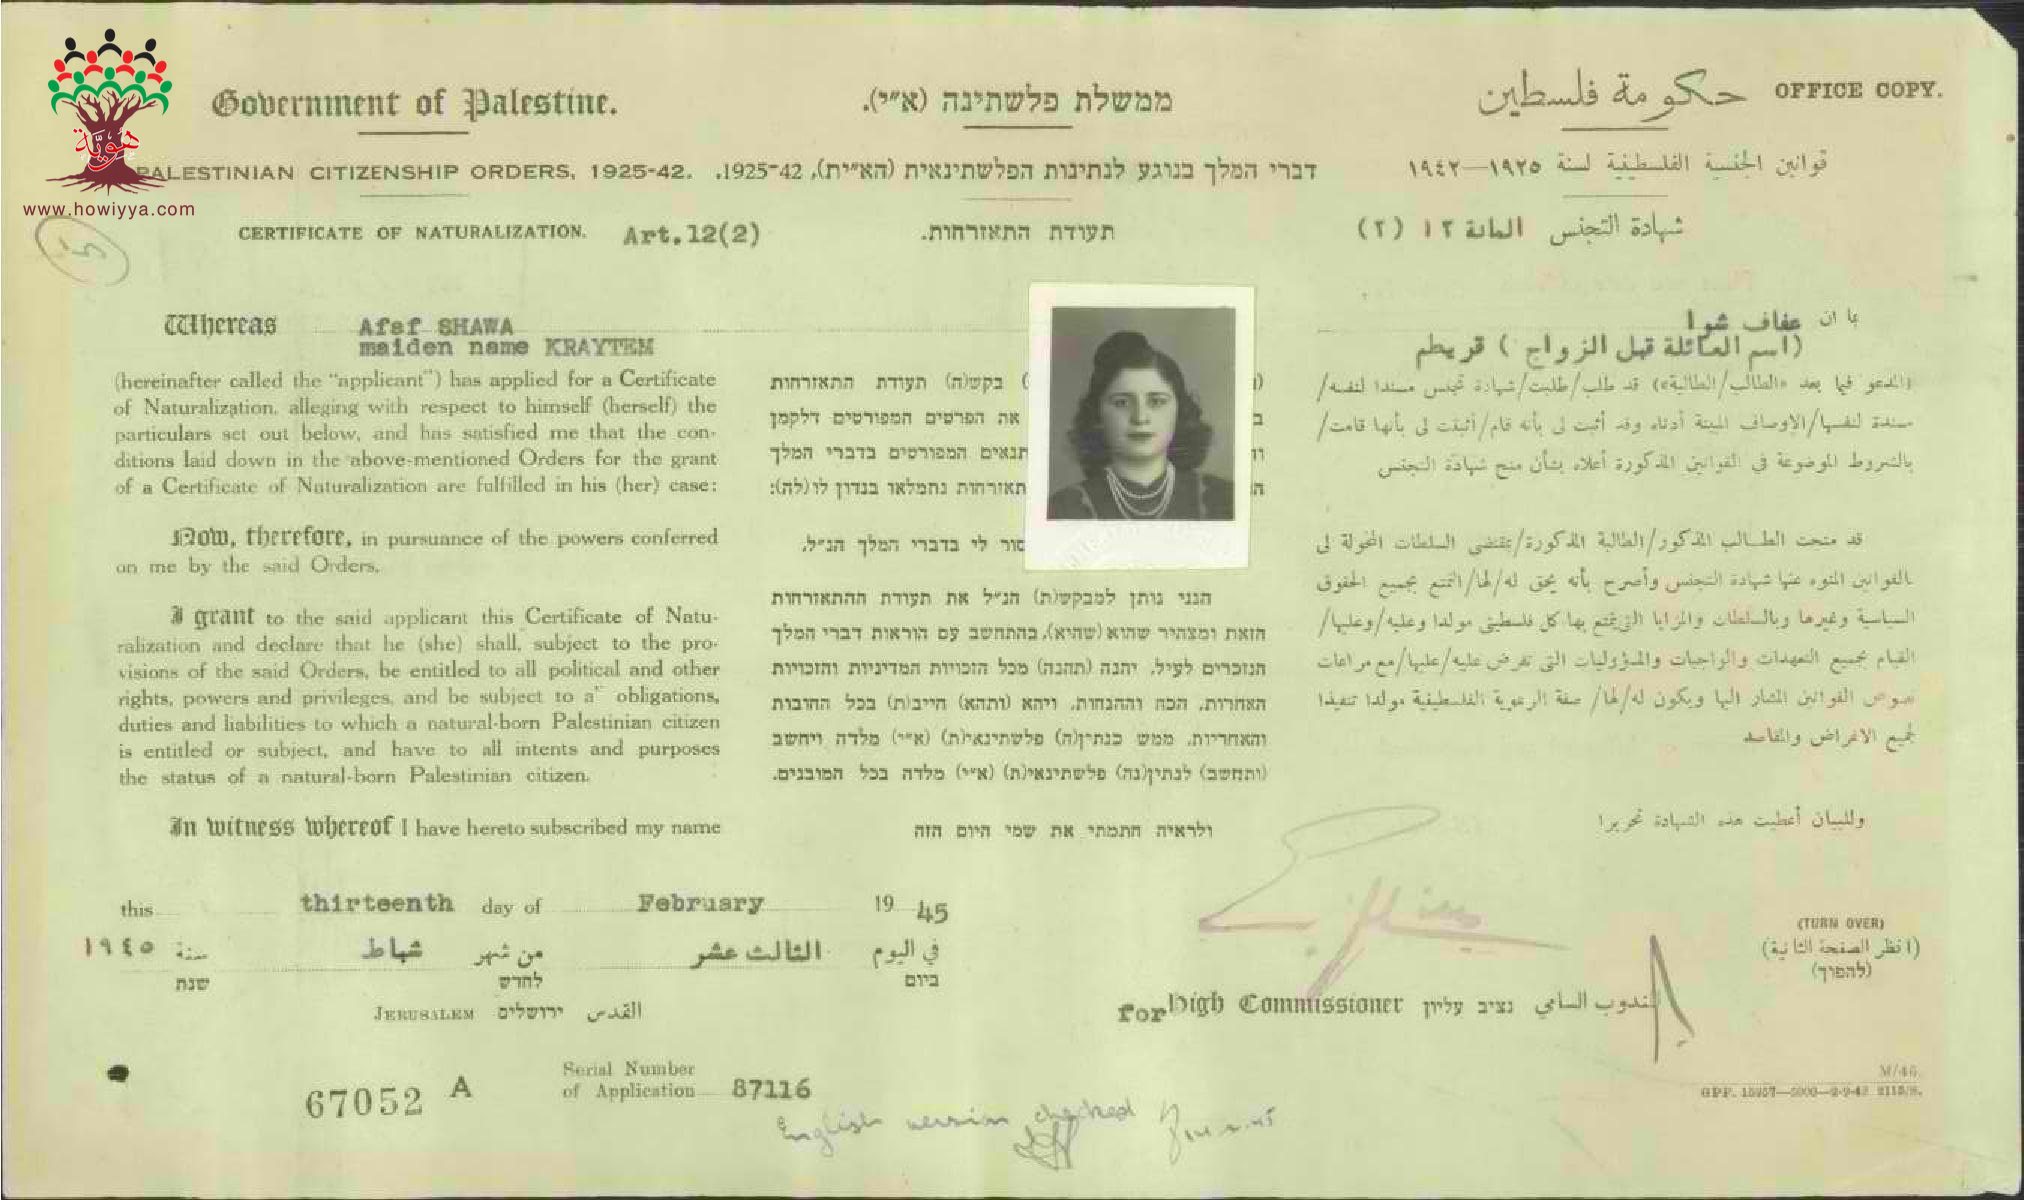 هُويَّة
www.howiyya.com
Government of Palestine.
ממשלת פלשתינה (א״י).
حكومة فلسطين
OFFICE COPY.
PALESTINIAN CITIZENSHIP ORDERS, 1925-42.
דברי המלך בנוגע לנתינות הפלשתינאית (הא״ית), 1925-42.
قوانين الجنسية الفلسطينية لسنة ١٩٢٥—١٩٤٢
CERTIFICATE OF NATURALIZATION. Art.12(2)
תעודת התאזרחות.
شهادة التجنس المادة ١٢ (٢)
Whereas Afaf SHAWA
maiden name KRAYTEM
(hereinafter called the "applicant") has applied for a Certificate
of Naturalization, alleging with respect to himself (herself) the
particulars set out below, and has satisfied me that the con-
ditions laid down in the above-mentioned Orders for the grant
of a Certificate of Naturalization are fulfilled in his (her) case:
Now, therefore, in pursuance of the powers conferred
on me by the said Orders.
I grant to the said applicant this Certificate of Natu-
ralization and declare that he (she) shall, subject to the pro-
visions of the said Orders, be entitled to all political and other
rights, powers and privileges, and be subject to a" obligations,
duties and liabilities to which a natural-born Palestinian citizen
is entitled or subject, and have to all intents and purposes
the status of a natural-born Palestinian citizen.
In witness whereof I have hereto subscribed my name
) בקש(ה) תעודת התאזרחות
את הפרטים המפורטים דלקמן
תנאים המפורטים בדברי המלך
תאזרחות נתמלאו בנדון לו (לה):
סור לי בדברי המלך הנ״ל,
הנני נותן למבקש(ת) הנ״ל את תעודת ההתאזרחות
הזאת ומצהיר שהוא (שהיא), בהתחשב עם הוראות דברי המלך
הנזכרים לעיל, יהנה (תהנה) מכל הזכויות המדיניות והזכויות
האחרות, הכח וההנחות, ויהא (ותהא) חייב(ת) בכל החובות
והאחריות, ממש כנתין(ה) פלשתינאי(ת) (א״י) מלדה ויחשב
(ותחשב) לנתין(נה) פלשתינאי(ת) (א״י) מלדה בכל המובנים.
ולראיה חתמתי את שמי היום הזה
بما ان عفاف شوا
(اسم العائلة قبل الزواج ) قريطم
(المدعو فيما بعد «الطالب/الطالبة») قد طلب/طلبت/شهادة تجنس مسندا لنفسه/
مسندة لنفسها/الاوصاف المبينة أدناه وقد أثبت لي بأنه قام/أثبتت لي بأنها قامت/
بالشروط الموضوعة في القوانين المذكورة أعلاه بشأن منح شهادة التجنس
قد منحت الطالب المذكور/الطالبة المذكورة/بمقتضى السلطات المخولة لي
بالقوانين المنوه عنها شهادة التجنس وأصرح بأنه يحق له/لها/التمتع بجميع الحقوق
السياسية وغيرها وبالسلطات والمزايا التي يتمتع بها كل فلسطيني مولدا وعليه/وعليها/
القيام بجميع التعهدات والواجبات والمسؤوليات التي تفرض عليه/عليها/مع مراعات
نصوص القوانين المشار اليها ويكون له/لها/ صفة الرعوية الفلسطينية مولدا تنفيذا
لجميع الاغراض والمقاصد
وللبيان أعطيت هذه الشهادة تحريرا
this thirteenth day of February 19 45
في اليوم الثالث عشر من شهر شباط سنة ١٩٤٥
ביום לחדש שנת
JERUSALEM ירושלים القدس
for High Commissioner נציב עליון المندوب السامي
(TURN OVER)
(انظر الصفحة الثانية)
(להפוך)
67052 A
Serial Number
of Application 87116
English version checked
M/46.
GPP. 15957—5000—2-9-43 2115/S.